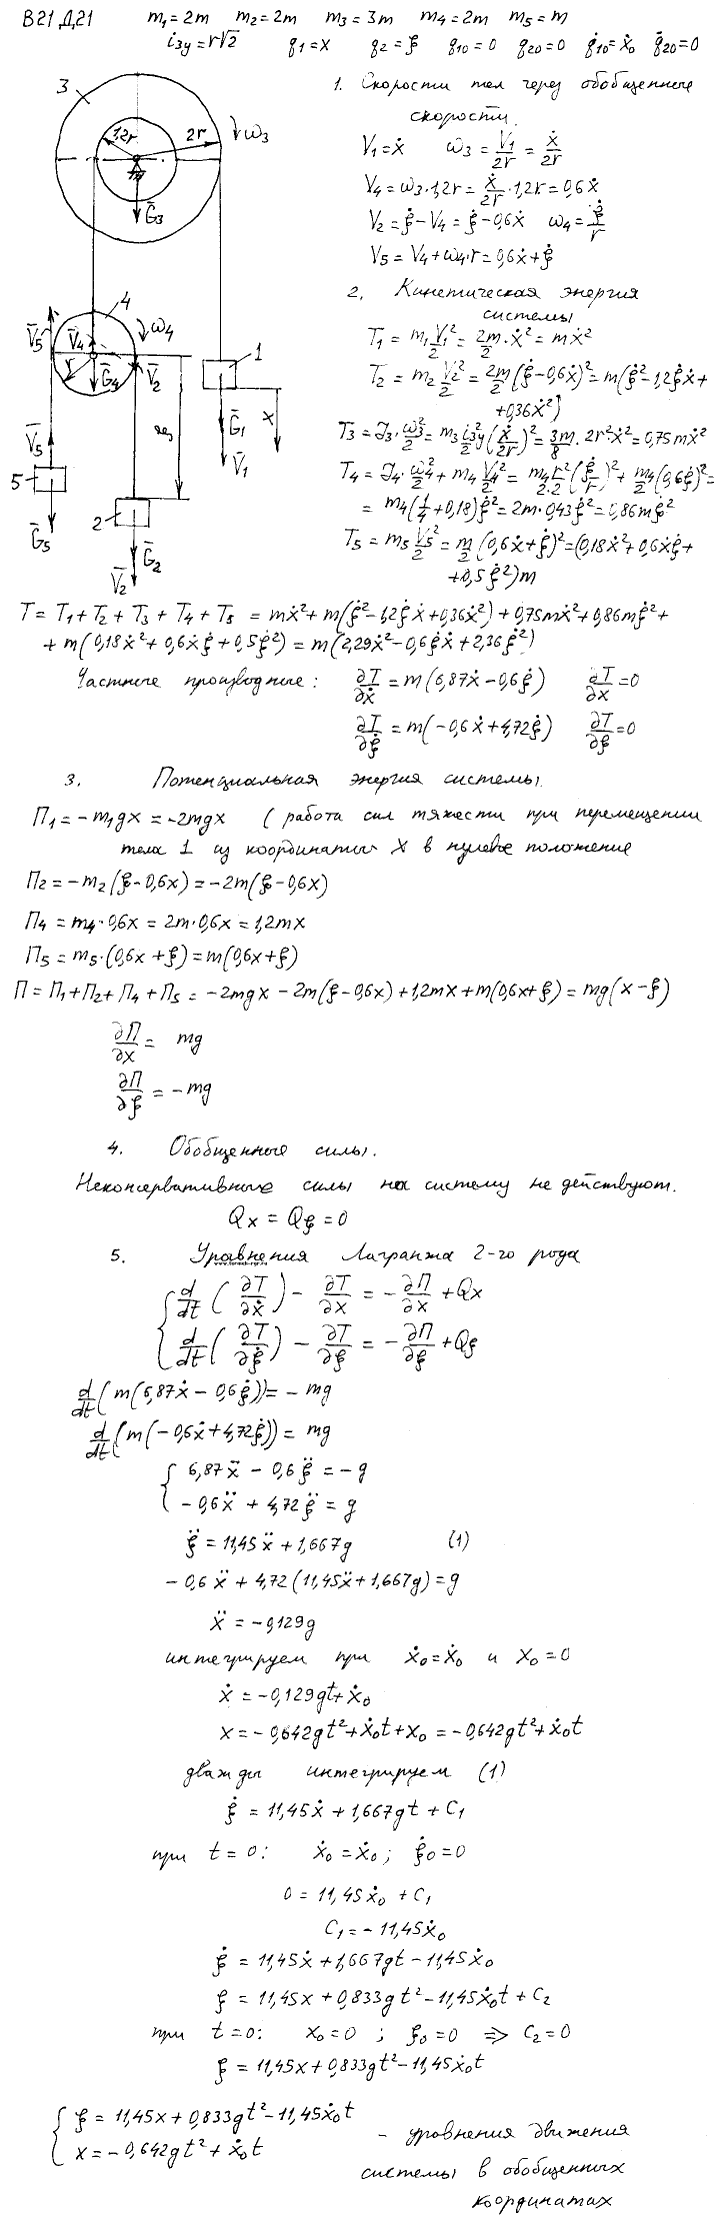 В21 Д.21 m₁=2m m₂=2m m₃=3m m₄=2m m₅=m
i₃y=r√2 q₁=x q₂=ξ q₁₀=0 q₂₀=0 q̇₁₀=ẋ₀ q̇₂₀=0
3
1,2r
2r
ω₃
Ḡ₃
4
ω₄
V̄₅
V̄₄
r
Ḡ₄
V̄₂
1
ξ
x
Ḡ₁
V̄₁
V̄₅
5
Ḡ₅
2
Ḡ₂
V̄₂
1. Скорости тел через обобщенные
скорости.
V₁=ẋ ω₃=V₁/2r=ẋ/2r
V₄=ω₃·1,2r=ẋ/2r·1,2r=0,6ẋ
V₂=ξ̇-V₄=ξ̇-0,6ẋ ω₄=ξ̇/r
V₅=V₄+ω₄·r=0,6ẋ+ξ̇
2. Кинетическая энергия
системы
T₁=m₁V₁²/2=2m/2·ẋ²=mẋ²
T₂=m₂V₂²/2=2m/2(ξ̇-0,6ẋ)²=m(ξ̇²-1,2ξ̇ẋ+
+0,36ẋ²)
T₃=J₃·ω₃²/2=m₃i₃y²/2(ẋ/2r)²=3m/8·2r²ẋ²=0,75mẋ²
T₄=J₄·ω₄²/2+m₄V₄²/2=m₄r²/2·2(ξ̇/r)²+m₄/2(0,6ξ̇)²=
=m₄(1/4+0,18)ξ̇²=2m·0,43ξ̇²=0,86mξ̇²
T₅=m₅V₅²/2=m/2(0,6ẋ+ξ̇)²=(0,18ẋ²+0,6ẋξ̇+
+0,5ξ̇²)m
T=T₁+T₂+T₃+T₄+T₅=mẋ²+m(ξ̇²-1,2ξ̇ẋ+0,36ẋ²)+0,75mẋ²+0,86mξ̇²+
+m(0,18ẋ²+0,6ẋξ̇+0,5ξ̇²)=m(2,29ẋ²-0,6ξ̇ẋ+2,36ξ̇²)
Частные производные: ∂T/∂ẋ=m(6,87ẋ-0,6ξ̇) ∂T/∂x=0
∂T/∂ξ̇=m(-0,6ẋ+4,72ξ̇) ∂T/∂ξ=0
3. Потенциальная энергия системы.
П₁=-m₁gx=-2mgx (работа сил тяжести при перемещении
тела 1 из координаты x в нулевое положение
П₂=-m₂(ξ-0,6x)=-2m(ξ-0,6x)
П₄=m₄·0,6x=2m·0,6x=1,2mx
П₅=m₅·(0,6x+ξ)=m(0,6x+ξ)
П=П₁+П₂+П₄+П₅=-2mgx-2m(ξ-0,6x)+1,2mx+m(0,6x+ξ)=mg(x-ξ)
∂П/∂x= mg
∂П/∂ξ=-mg
4. Обобщенные силы.
Неконсервативные силы на систему не действуют.
Qx=Qξ=0
5. Уравнения Лагранжа 2-го рода
{ d/dt(∂T/∂ẋ)-∂T/∂x=-∂П/∂x+Qx
{ d/dt(∂T/∂ξ̇)-∂T/∂ξ=-∂П/∂ξ+Qξ
d/dt(m(6,87ẋ-0,6ξ̇))=-mg
d/dt(m(-0,6ẋ+4,72ξ̇))=mg
{ 6,87ẍ-0,6ξ̈=-g
{ -0,6ẍ+4,72ξ̈=g
ξ̈=11,45ẍ+1,667g (1)
-0,6ẍ+4,72(11,45ẍ+1,667g)=g
ẍ=-0,129g
интегрируем при ẋ₀=ẋ₀ и x₀=0
ẋ=-0,129gt+ẋ₀
x=-0,642gt²+ẋ₀t+x₀=-0,642gt²+ẋ₀t
дважды интегрируем (1)
ξ̇=11,45ẋ+1,667gt+C₁
при t=0: ẋ₀=ẋ₀; ξ̇₀=0
0=11,45ẋ₀+C₁
C₁=-11,45ẋ₀
ξ̇=11,45ẋ+1,667gt-11,45ẋ₀
ξ=11,45x+0,833gt²-11,45ẋ₀t+C₂
при t=0: x₀=0; ξ₀=0 ⇒ C₂=0
ξ=11,45x+0,833gt²-11,45ẋ₀t
{ ξ=11,45x+0,833gt²-11,45ẋ₀t
{ x=-0,642gt²+ẋ₀t
- уравнения движения
системы в обобщенных
координатах